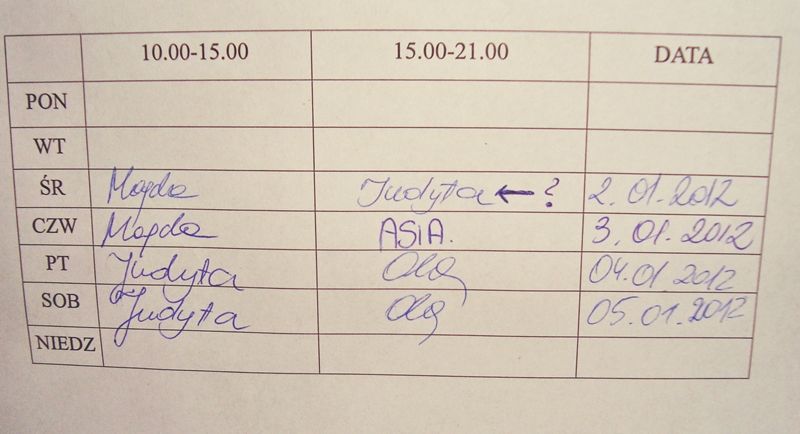 10.00-15.00 15.00-21.00 DATA
PON
WT
ŚR Magda Judyta ← ? 2.01.2012
CZW Magda ASIA. 3.01.2012
PT Judyta Ola 04.01.2012
SOB Judyta Ola 05.01.2012
NIEDZ